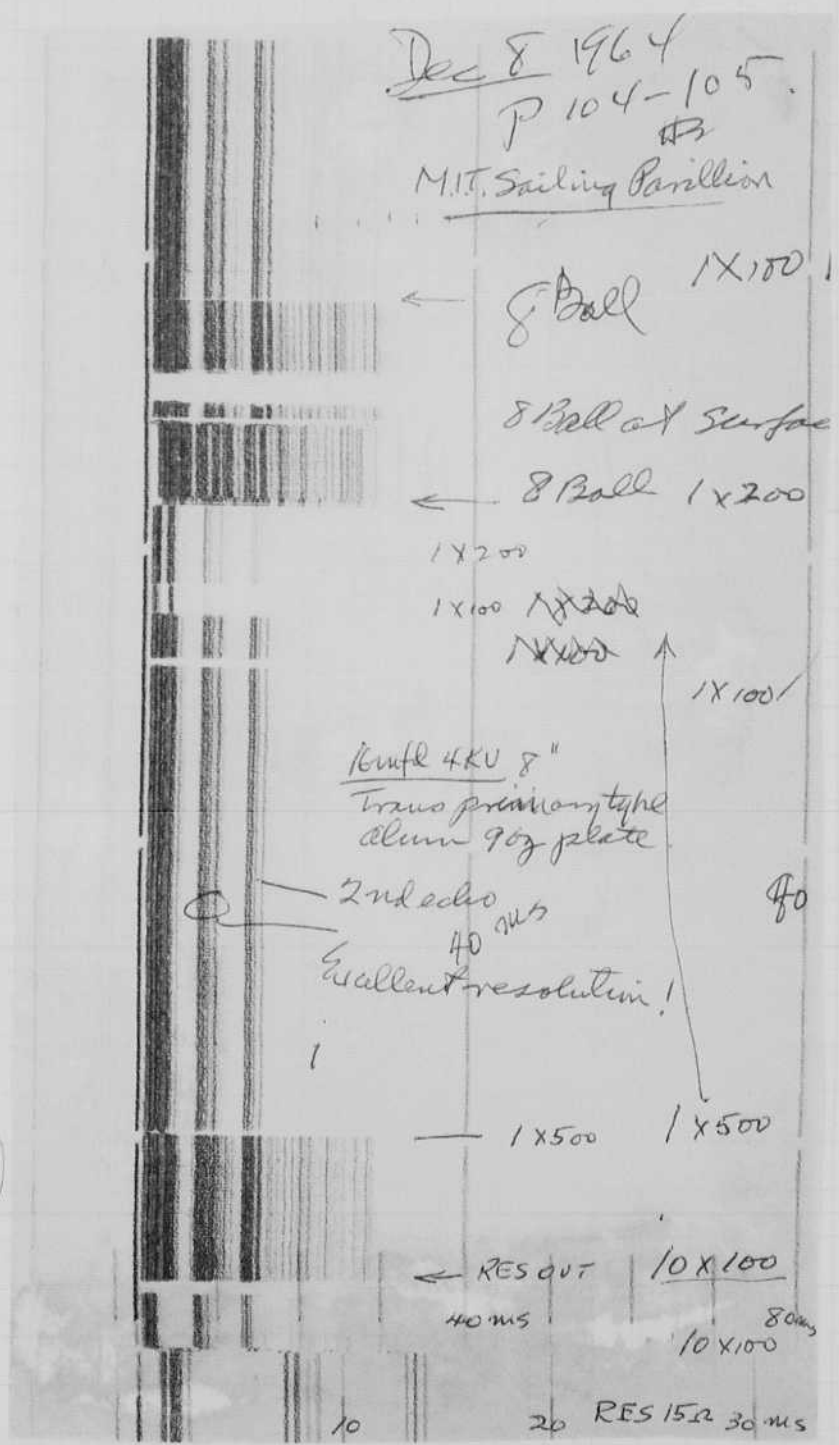 Dec 8 1964
P 104-105.
M.I.T. Sailing Pavillion
8 Ball 1X100
8 Ball at Surfac
8 Ball 1X200
1X200
1X100
1X100
16mfd 4KV 8"
Trans primary type
alum 9oz plate
2nd echo
40 ms
Excellent resolution!
1X500 1X500
RES OUT 10X100
40 ms 80ms
10X100
10 20 RES 15Ω 30 ms